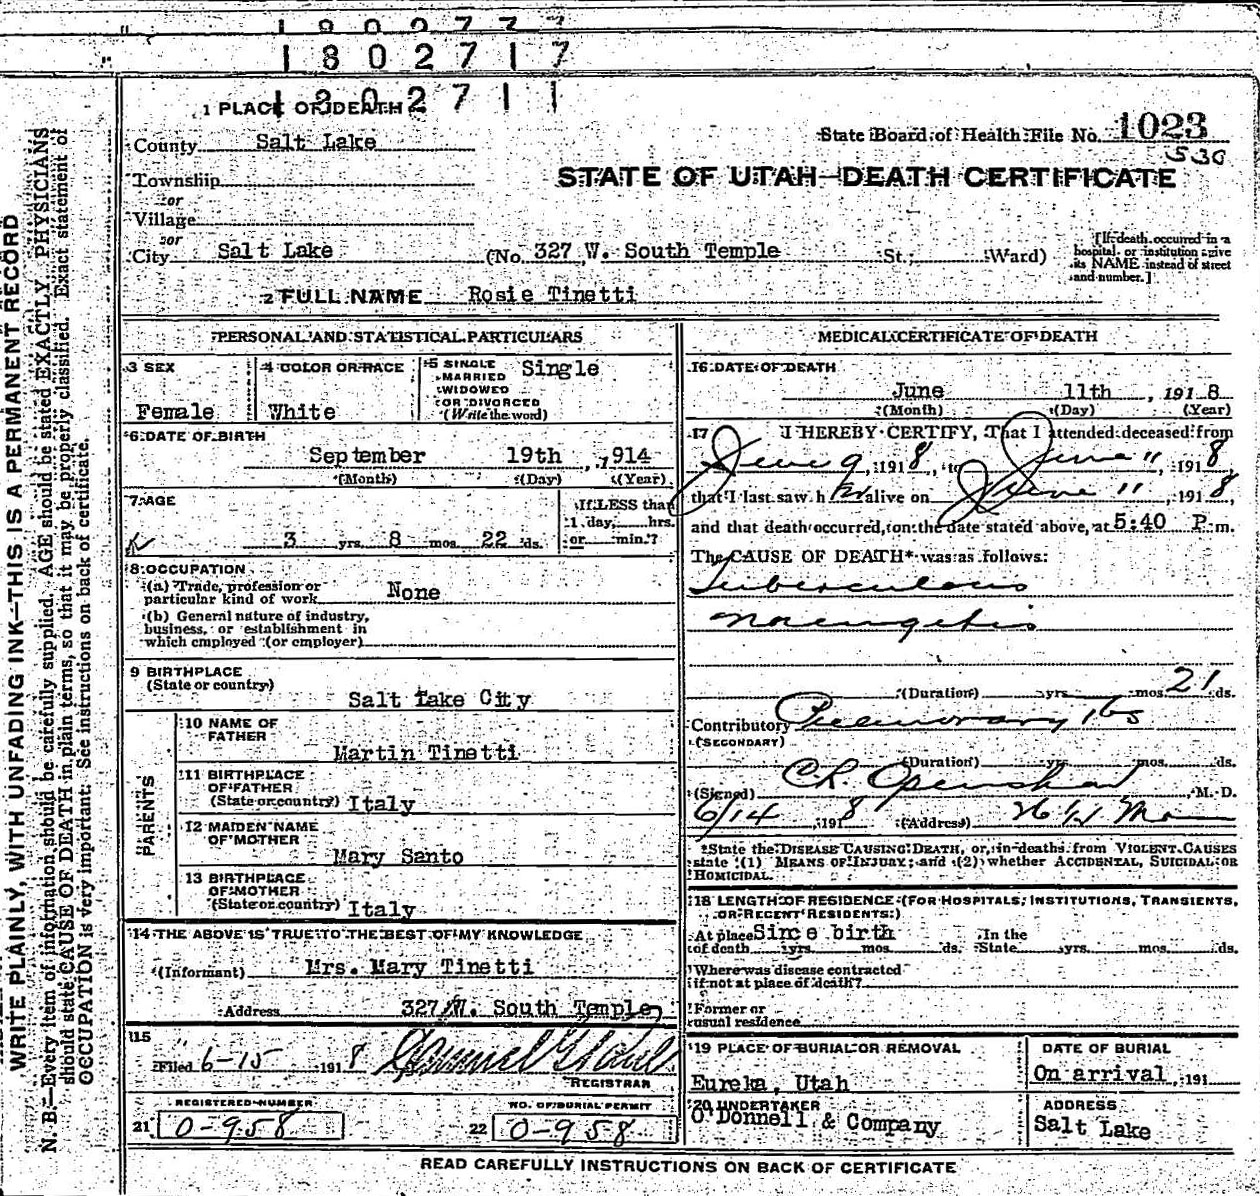 1802717
1 PLACE OF DEATH
County Salt Lake
State Board of Health File No. 1023
530
Township
or
Village
or
City Salt Lake (No. 327 W. South Temple St.; Ward)
STATE OF UTAH—DEATH CERTIFICATE
[If death occurred in a
hospital or institution give
its NAME instead of street
and number.]
2 FULL NAME Rosie Tinetti
PERSONAL AND STATISTICAL PARTICULARS
3 SEX
Female
4 COLOR OR RACE
White
5 SINGLE
MARRIED
WIDOWED
OR DIVORCED
(Write the word)
Single
6 DATE OF BIRTH
September 19th, 1914
(Month) (Day) (Year)
7 AGE
3 yrs. 8 mos. 22 ds.
If LESS than
1 day, hrs.
or min.?
8 OCCUPATION
(a) Trade, profession or
particular kind of work None
(b) General nature of industry,
business, or establishment in
which employed (or employer)
9 BIRTHPLACE
(State or country)
Salt Lake City
PARENTS
10 NAME OF
FATHER
Martin Tinetti
11 BIRTHPLACE
OF FATHER
(State or country) Italy
12 MAIDEN NAME
OF MOTHER
Mary Santo
13 BIRTHPLACE
OF MOTHER
(State or country) Italy
14 THE ABOVE IS TRUE TO THE BEST OF MY KNOWLEDGE
(Informant) Mrs. Mary Tinetti
Address 327 W. South Temple
15
Filed 6-15 1918
REGISTRAR
REGISTERED NUMBER
21 0-958
NO. OF BURIAL PERMIT
22 0-958
MEDICAL CERTIFICATE OF DEATH
16 DATE OF DEATH
June 11th, 1918
(Month) (Day) (Year)
17 I HEREBY CERTIFY, That I attended deceased from
June 9, 1918, to June 11, 1918
that I last saw h er alive on June 11, 1918,
and that death occurred, on the date stated above, at 5:40 P. m.
The CAUSE OF DEATH* was as follows:
Tuberculous
Meningitis
(Duration) yrs. mos. 21 ds.
Contributory
(SECONDARY)
(Duration) yrs. mos. ds.
(Signed) C R Openshaw, M. D.
6/14 1918 (Address)
*State the DISEASE CAUSING DEATH, or, in deaths from VIOLENT CAUSES
state (1) MEANS OF INJURY; and (2) whether ACCIDENTAL, SUICIDAL OR
HOMICIDAL.
18 LENGTH OF RESIDENCE (FOR HOSPITALS, INSTITUTIONS, TRANSIENTS,
OR RECENT RESIDENTS.)
At place Since birth In the
of death yrs. mos. ds. State yrs. mos. ds.
Where was disease contracted
if not at place of death?
Former or
usual residence
19 PLACE OF BURIAL OR REMOVAL
Eureka, Utah
DATE OF BURIAL
On arrival, 191
20 UNDERTAKER
O'Donnell & Company
ADDRESS
Salt Lake
READ CAREFULLY INSTRUCTIONS ON BACK OF CERTIFICATE
WRITE PLAINLY, WITH UNFADING INK—THIS IS A PERMANENT RECORD
N. B.—Every item of information should be carefully supplied. AGE should be stated EXACTLY. PHYSICIANS
should state CAUSE OF DEATH in plain terms, so that it may be properly classified. Exact statement of
OCCUPATION is very important. See instructions on back of certificate.